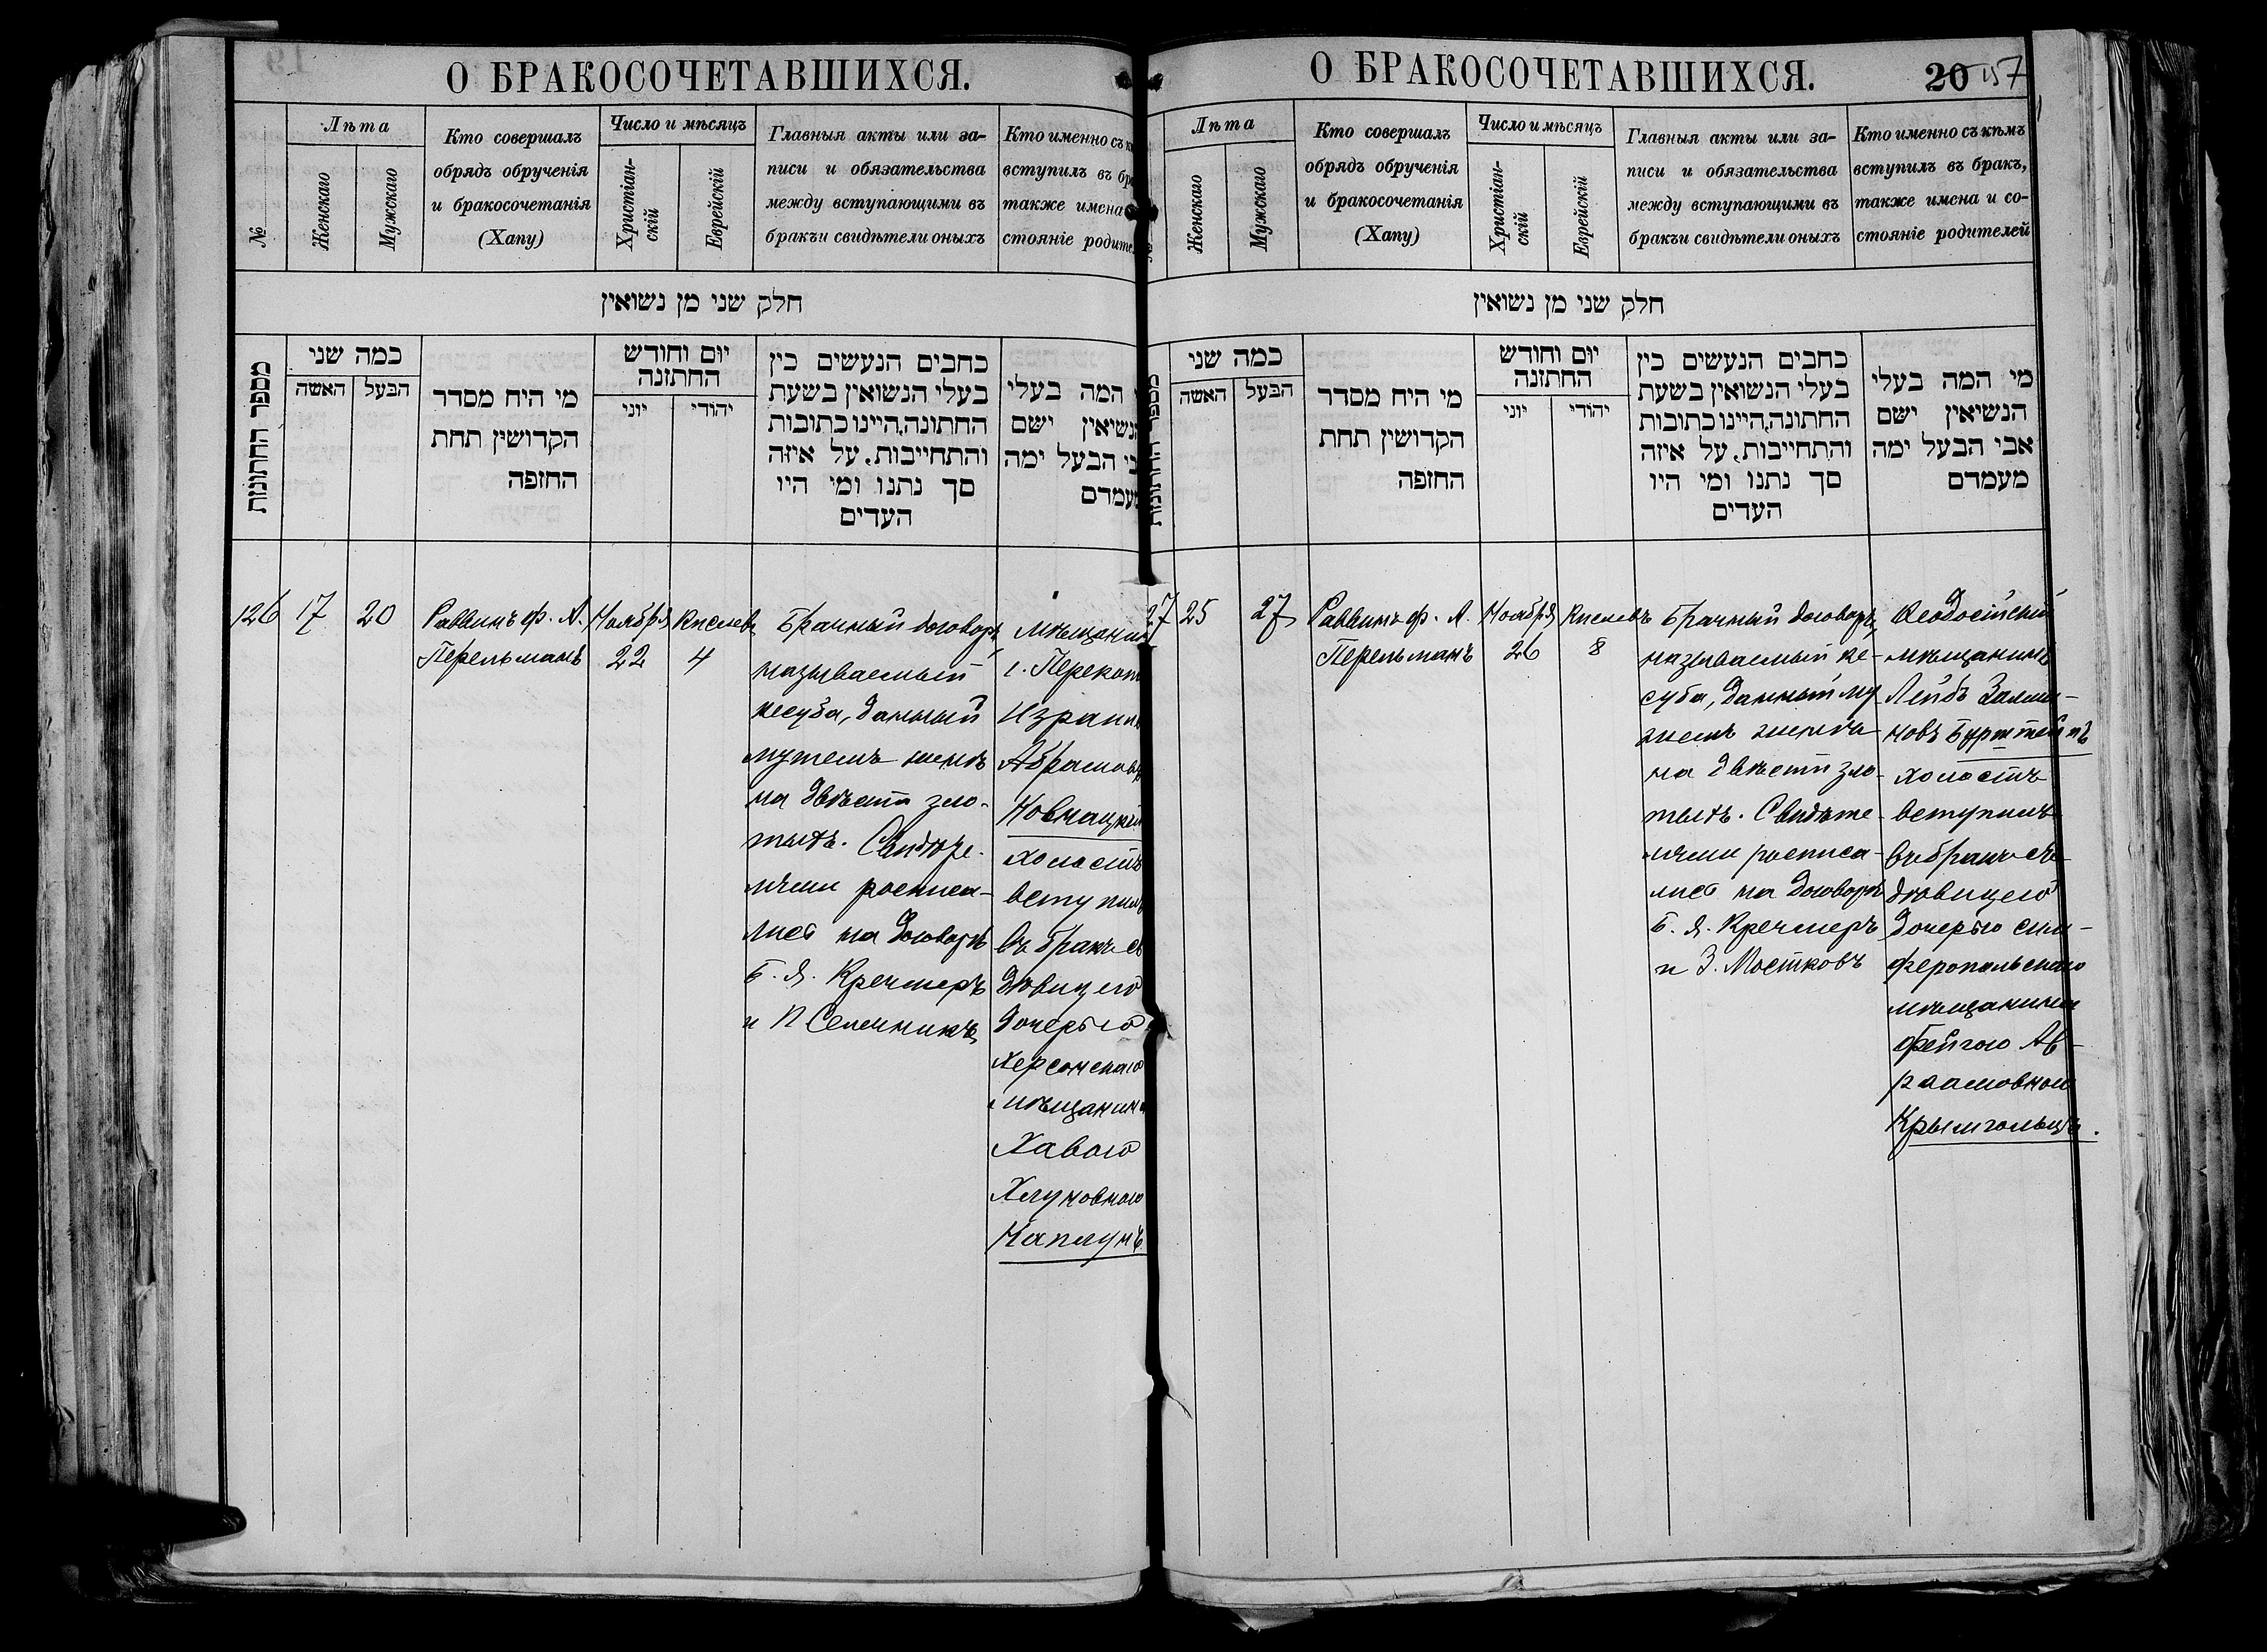 О БРАКОСОЧЕТАВШИХСЯ.
№
Лѣта
Женскаго
Мужскаго
Кто совершалъ
обрядъ обрученія
и бракосочетанія
(Хапу)
Число и мѣсяцъ
Христіан-
скій
Еврейскій
Главныя акты или за-
писи и обязательства
между вступающими въ
бракъ и свидѣтели оныхъ
Кто именно съ
вступилъ въ
также имена
стояніе
חלק שני מן נשואין
מספר החתונות
כמה שני
האשה
הבעל
מי היח מסדר
הקדושין תחת
החופה
יום וחודש
החתונה
יוני
יהודי
כחבים הנעשים כין
בעלי הנשואין בשעת
החתונה,היינו כתובות
והתחייבות, על איזה
סך נתנו ומי היו
העדים
המה בעלי
ישם
הבעל ימה
126
17
20
Раввинъ ф. А.
Перельманъ
Ноября
22
Кислевъ
4
Брачный договоръ,
называемый
кесуба, данный
мужемъ женѣ
на двѣсти зло-
тыхъ. Свидѣте-
лями росписа-
лись на договорѣ
Б. Я. Кречмеръ
и П Селечникъ
мѣщанинъ
г. Перекопа
Израиль
Абрамовъ
Новнацкій
холостъ
вступилъ
въ бракъ съ
дѣвицею
дочерью
херсонскаго
мѣщанина
Хавою
Хлуновною
Каплунъ
О БРАКОСОЧЕТАВШИХСЯ.
20 157
Лѣта
Женскаго
Мужскаго
Кто совершалъ
обрядъ обрученія
и бракосочетанія
(Хапу)
Число и мѣсяцъ
Христіан-
скій
Еврейскій
Главныя акты или за-
писи и обязательства
между вступающими въ
бракъ и свидѣтели оныхъ
Кто именно съ кѣмъ
вступилъ въ бракъ,
также имена и со-
стояніе родителей
חלק שני מן נשואין
כמה שני
האשה
הבעל
מי היח מסדר
הקדושין תחת
החופה
יום וחודש
החתונה
יוני
יהודי
כחבים הנעשים כין
בעלי הנשואין בשעת
החתונה,היינו כתובות
והתחייבות, על איזה
סך נתנו ומי היו
העדים
מי המה בעלי
הנשיאין ישם
אבי הבעל ימה
מעמדם
27
25
27
Раввинъ ф. А.
Перельманъ
Ноября
26
Кислевъ
8
Брачный договоръ,
называемый ке-
суба, данный му-
жемъ женѣ
на двѣсти зло-
тыхъ. Свидѣте-
лями росписа-
лись на договорѣ
Б. Я. Кречмеръ
и З. Мостковъ
Ѳеодосійскій
мѣщанинъ
Лейбъ Залма-
новъ Бурштейнъ
холостъ
вступилъ
въ бракъ съ
дѣвицею
дочерью сим-
феропольскаго
мѣщанина
Фейгою Ав-
раамовною
Крымгольцъ.